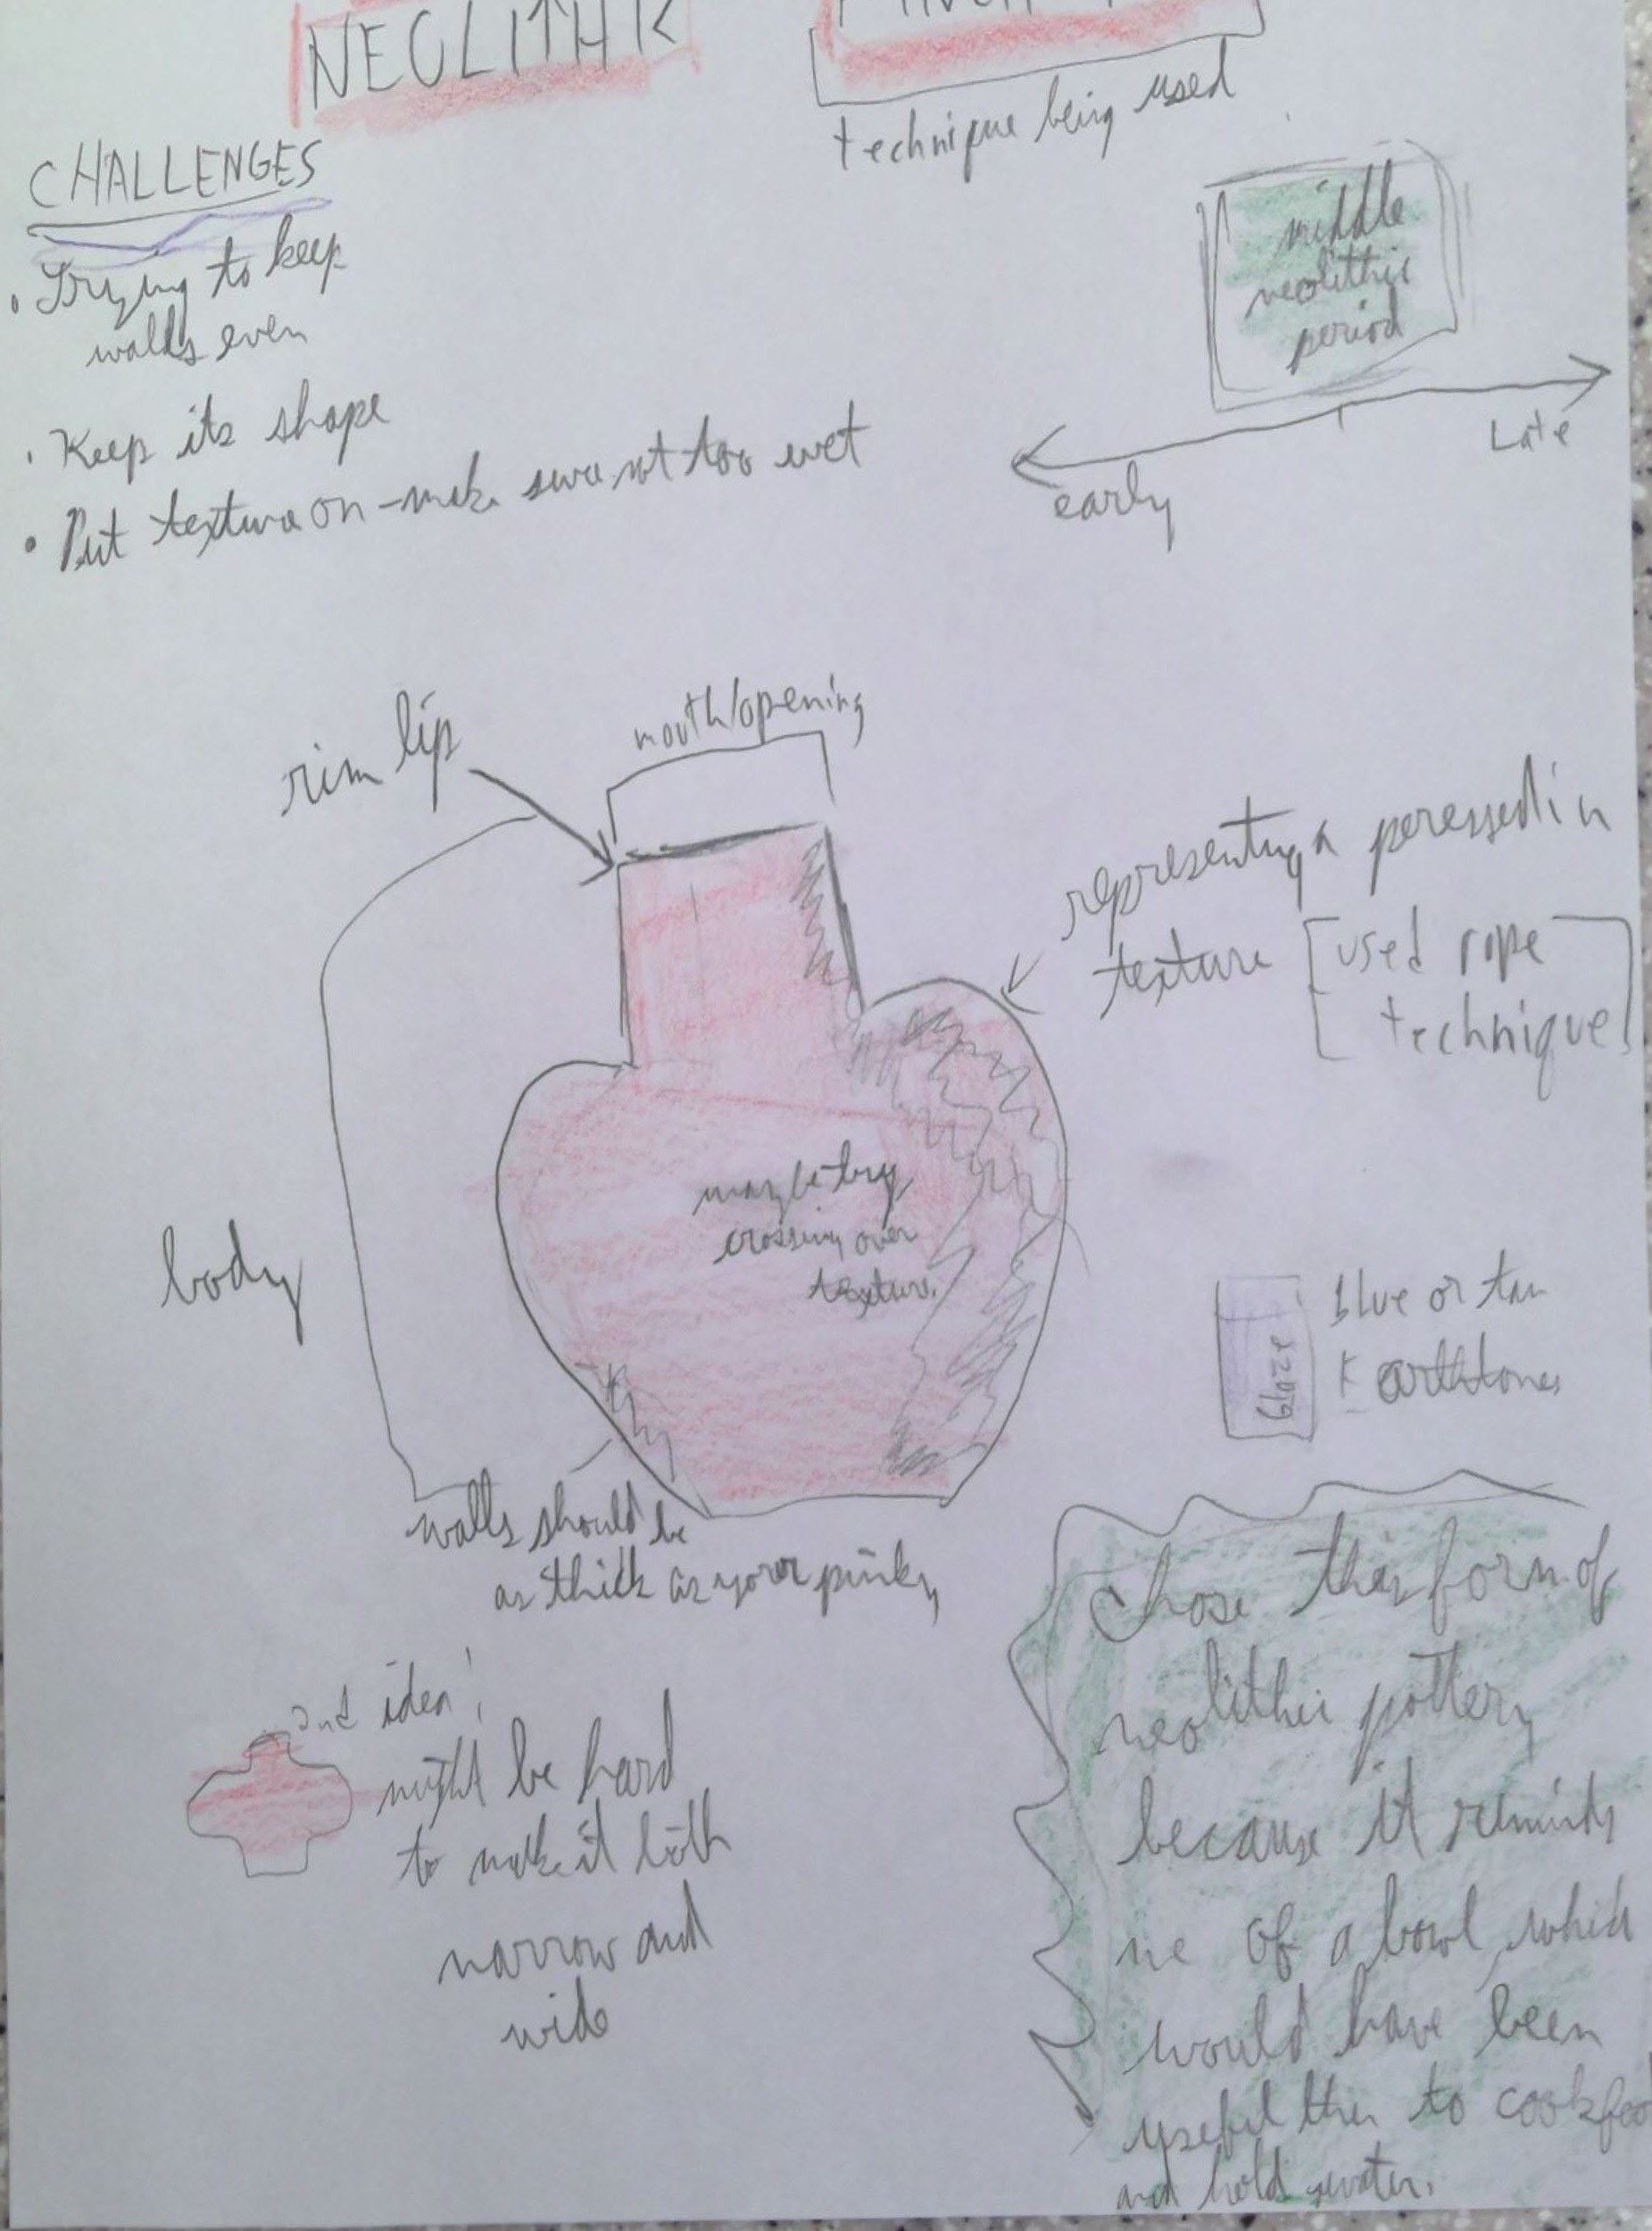 NEOLITHIK
technique being used
CHALLENGES
• Trying to keep
walls even
• Keep its shape
• Put texture on - make sure not too wet
middle
neolithic
period
early
Late
rim lip
mouth/opening
representing a peressed in
texture [used rope
technique]
body
maybe try
crossing over
texture.
Glaze
blue or tan
Earthtones
walls should be
as thick as your pinky
2nd idea!
might be hard
to make it both
narrow and
wide
Chose this form of
neolithic pottery
because it reminds
me of a bowl, which
would have been
useful then to cook food
and hold water.